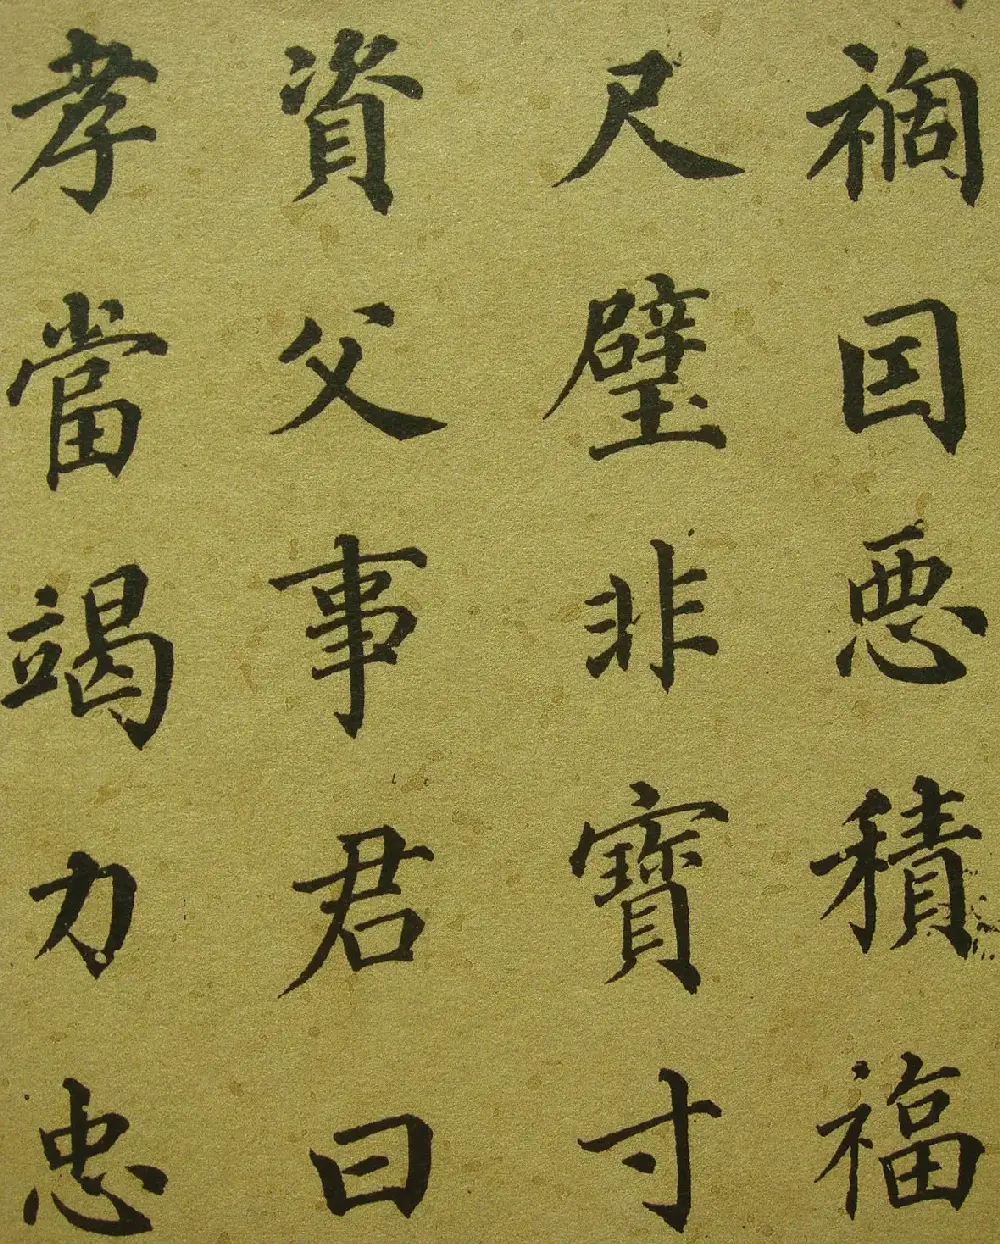 禍因惡積福
尺璧非寶寸
資父事君曰
孝當竭力忠